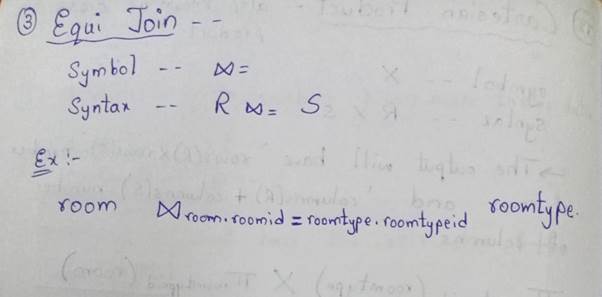 ③ Equi Join --
Symbol -- ⋈=
Syntax -- R ⋈= S
Ex :-
room ⋈ room.roomid = roomtype.roomtypeid roomtype.